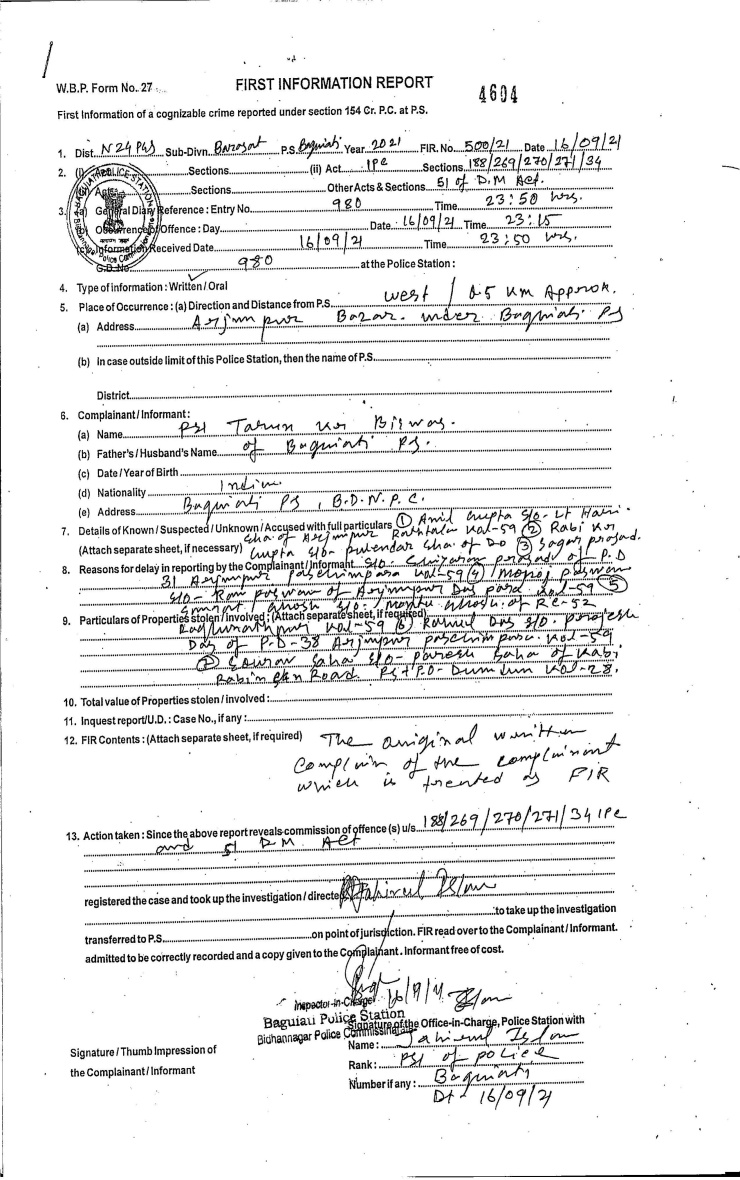 W.B.P. Form No. 27
FIRST INFORMATION REPORT
4604
First Information of a cognizable crime reported under section 154 Cr. P.C. at P.S.
1. Dist. N 24 PGS Sub-Divn. Barasat P.S. Baguiati Year 2021 FIR. No. 500/21 Date 16/09/21
2. (i) Sections (ii) Act IPC Sections 188/269/270/271/34
Sections Other Acts & Sections 51 of D.M Act.
3. (a) General Diary Reference : Entry No. 980 Time 23:50 hrs.
Occurrence of Offence : Day Date 16/09/21 Time 23:15
(c) Information Received Date 16/09/21 Time 23:50 hrs.
G.D. No. 980 at the Police Station :
4. Type of information : Written / Oral
5. Place of Occurrence : (a) Direction and Distance from P.S. West / 0.5 Km Approx.
(a) Address Arjunpur Bazar. under Baguiati PS
(b) In case outside limit of this Police Station, then the name of P.S.
District
6. Complainant / Informant :
(a) Name PSI Tarun Kr Biswas.
(b) Father's / Husband's Name of Baguiati PS.
(c) Date / Year of Birth
(d) Nationality Indian
(e) Address Baguiati PS, B.D.N.P.C.
7. Details of Known / Suspected / Unknown / Accused with full particulars ① Anil Gupta S/O- Lt Hari
(Attach separate sheet, if necessary) Sha of Arjunpur Rathtala Kol-59 ② Rabi Kr
Gupta S/O- Sha of Do ③ Sagar Prosad.
8. Reasons for delay in reporting by the Complainant / Informant S/O prosad of P.D
31 Arjunpur paschimpara Kol-59 ④ Monoj paswan
S/O- Ram paswan of Arjunpur Das para Kol-59 ⑤
9. Particulars of Properties stolen / involved : (Attach separate sheet, if required)
Ghosh S/O. Montu Ghosh. of RC-52
Raghunathpur Kol-59 ⑥ Das S/O.
Das of P.D-38 Arjunpur paschimpara. Kol-59
⑦ Sourav Saha S/O- Paresh Saha of Kabi
Road PS+P.O- Dumdum Kol-28.
10. Total value of Properties stolen / involved :
11. Inquest report / U.D. : Case No., if any :
12. FIR Contents : (Attach separate sheet, if required) The original written
complain of the complainant
which is treated as FIR
13. Action taken : Since the above report reveals commission of offence (s) u/s. 188/269/270/271/34 IPC
and 51 D.M Act
registered the case and took up the investigation / directed Jahirul Islam
to take up the investigation
transferred to P.S. on point of jurisdiction. FIR read over to the Complainant / Informant.
admitted to be correctly recorded and a copy given to the Complainant. Informant free of cost.
Inspector-in-Charge 16/9/21
Baguiati Police Station
Bidhannagar Police Commissionerate
Signature of the Office-in-Charge, Police Station with
Name : Jahirul Islam
Signature / Thumb Impression of
the Complainant / Informant
Rank : PSI of police
Number if any : Baguiati
Dt - 16/09/21